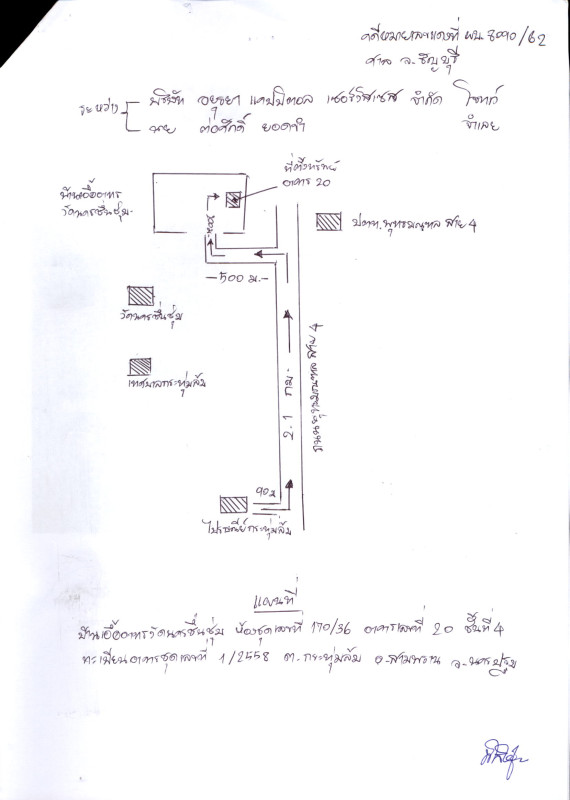 คดีหมายเลขแดงที่ ผบ. 8090/62
ศาล จ.ธัญบุรี
ระหว่าง บริษัท อยุธยา แคปปิตอล เซอร์วิสเซส จำกัด โจทก์
นาย ต่อศักดิ์ ยอดขำ จำเลย
ที่ตั้งทรัพย์
อาคาร 20
บ้านเอื้ออาทร
วัดนครชื่นชุ่ม
ปตท. พุทธมณฑล สาย 4
500 ม.
วัดนครชื่นชุ่ม
เทศบาลกระทุ่มล้ม
2.1 กม.
ถนนพุทธมณฑล สาย 4
90 ม
ไปรษณีย์กระทุ่มล้ม
แผนที่
บ้านเอื้ออาทรวัดนครชื่นชุ่ม ห้องชุดเลขที่ 170/36 อาคารเลขที่ 20 ชั้นที่ 4
ทะเบียนอาคารชุดเลขที่ 1/2558 ต.กระทุ่มล้ม อ.สามพราน จ.นครปฐม